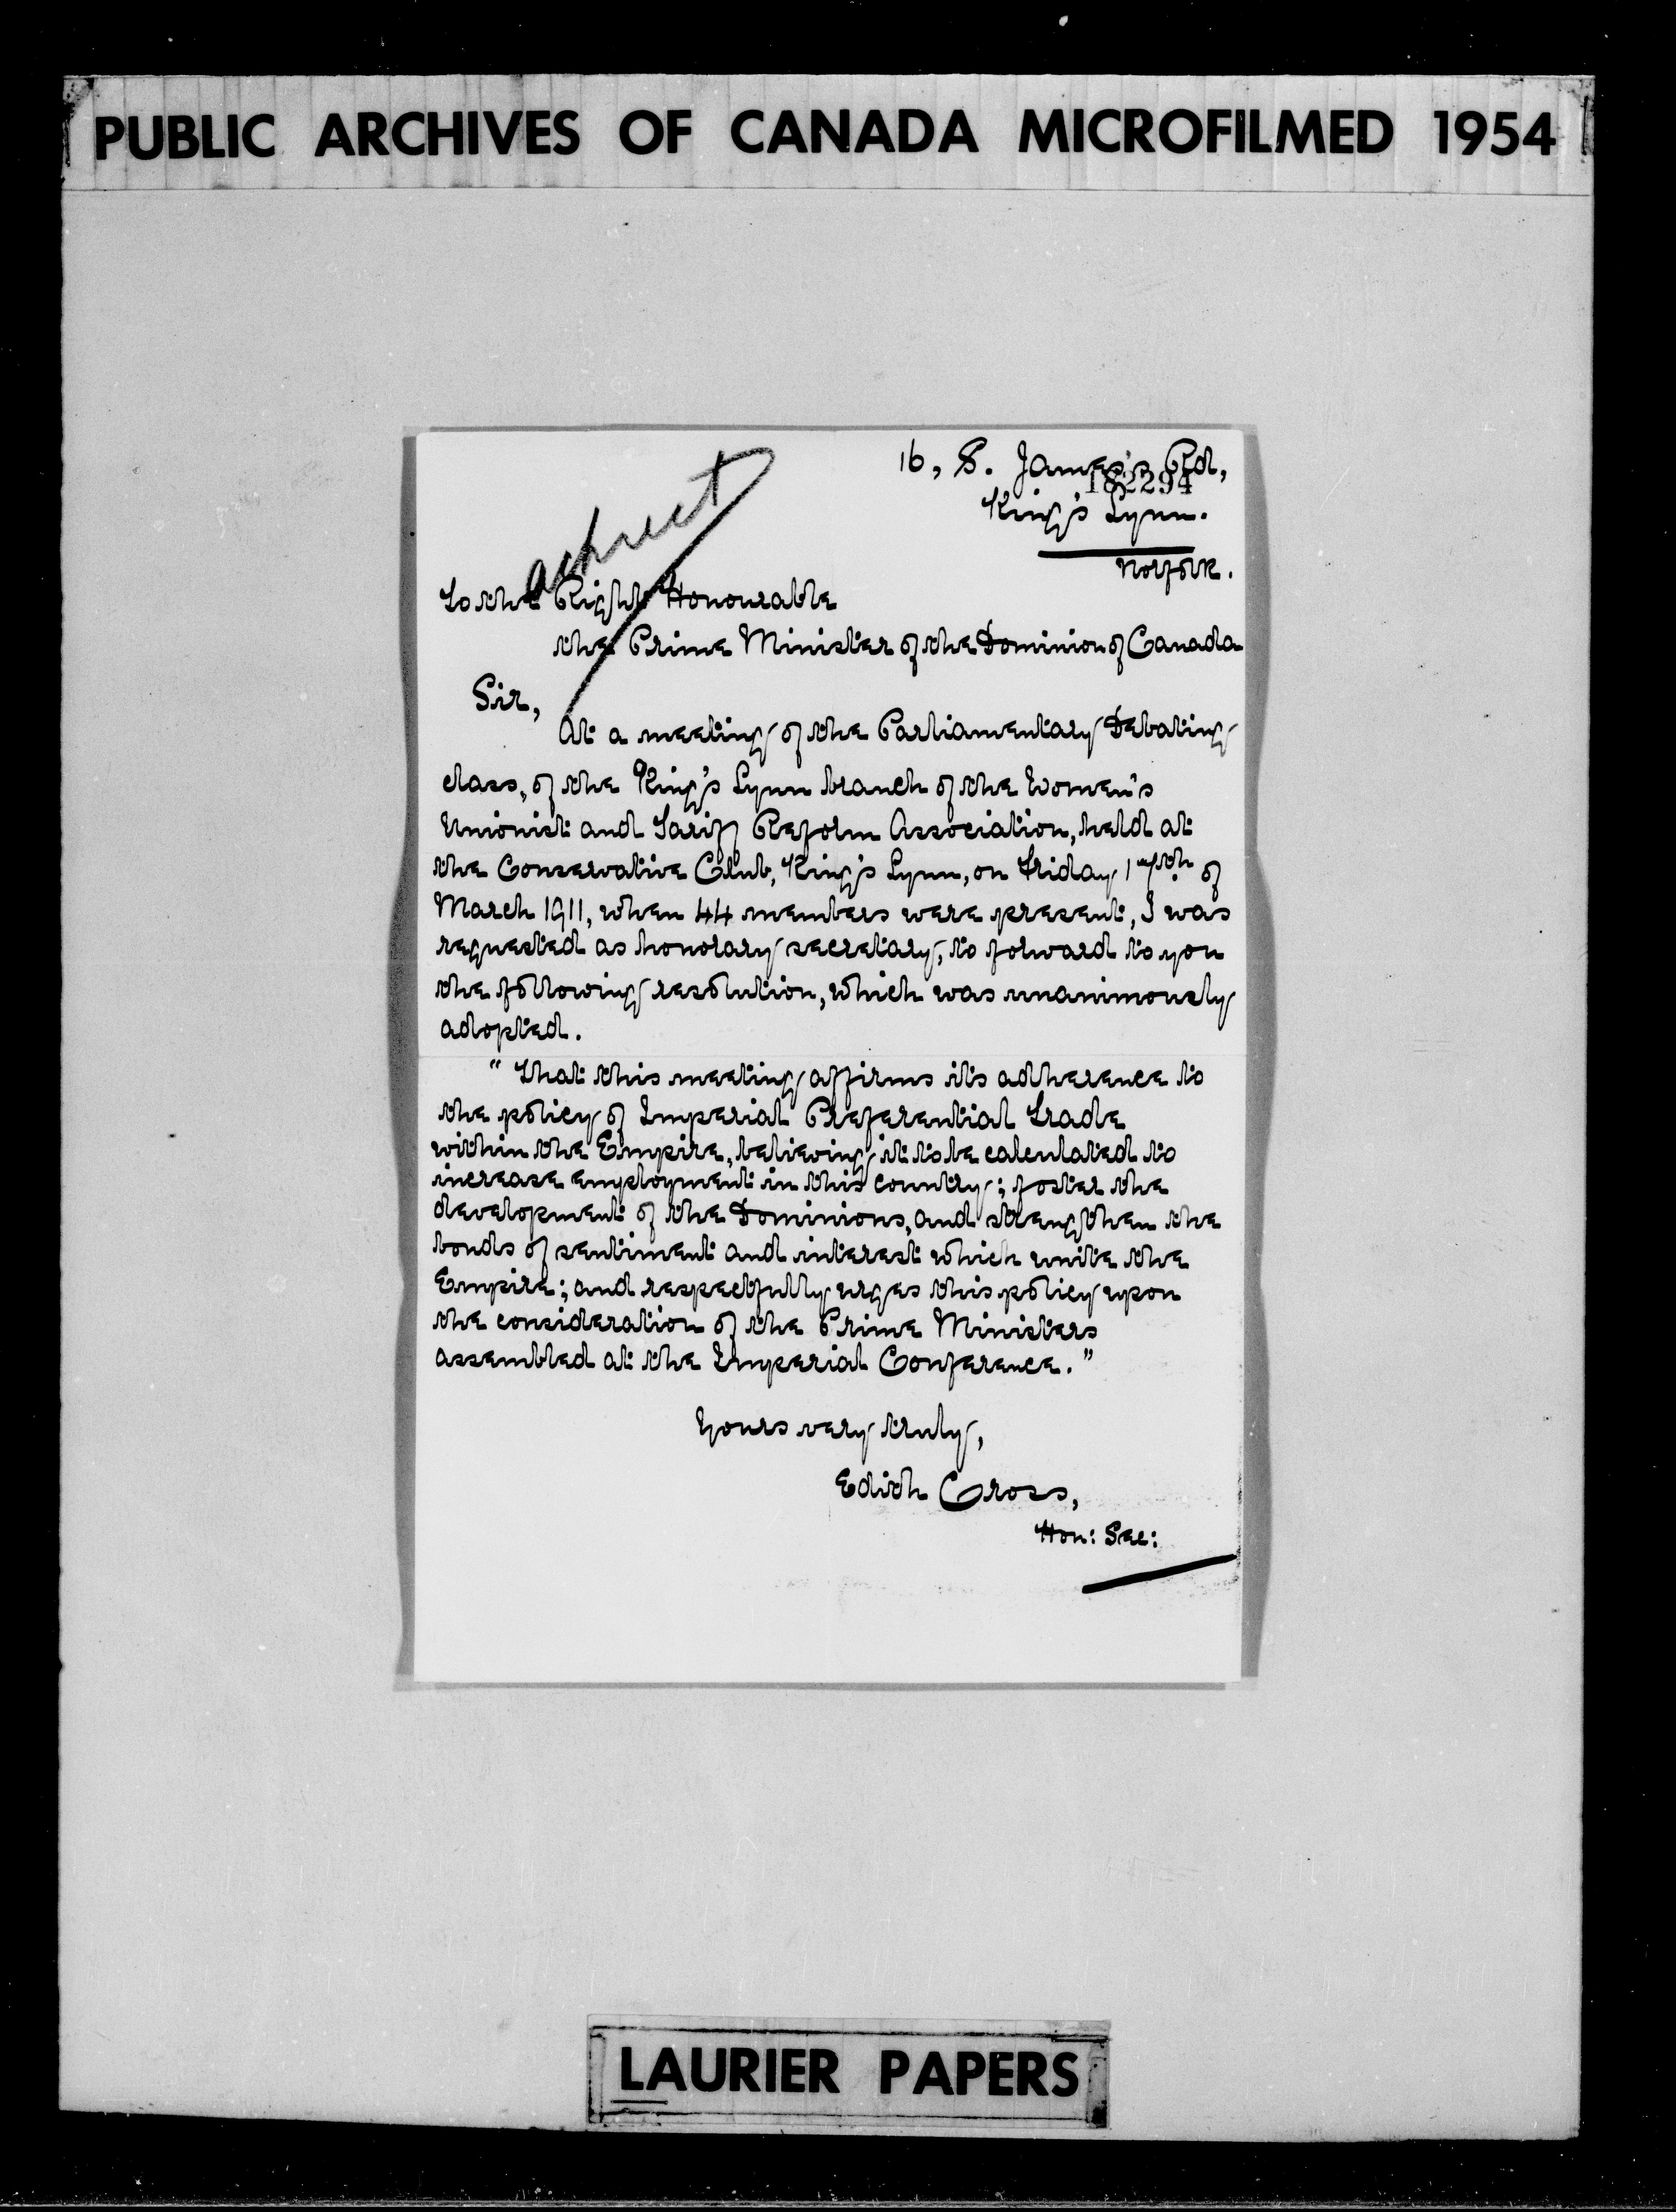 PUBLIC ARCHIVES OF CANADA MICROFILMED 1954
16, S. James's Rd,
182294
King's Lynn.
Norfolk.
To the Right Honourable
the Prime Minister of the Dominion of Canada
Sir,
At a meeting of the Parliamentary Debating
class, of the King's Lynn branch of the Women's
Unionist and Tariff Reform Association, held at
the Conservative Club, King's Lynn, on Friday 17th of
March 1911, when 44 members were present, I was
requested as honorary secretary, to forward to you
the following resolution, which was unanimously
adopted.
"That this meeting affirms its adherence to
the policy of Imperial Preferential Trade
within the Empire, believing it to be calculated to
increase employment in this country; foster the
development of the Dominions, and strengthen the
bonds of sentiment and interest which unite the
Empire; and respectfully urges this policy upon
the consideration of the Prime Ministers
assembled at the Imperial Conference."
Yours very truly,
Edith Cross,
Hon: Sec:
LAURIER PAPERS